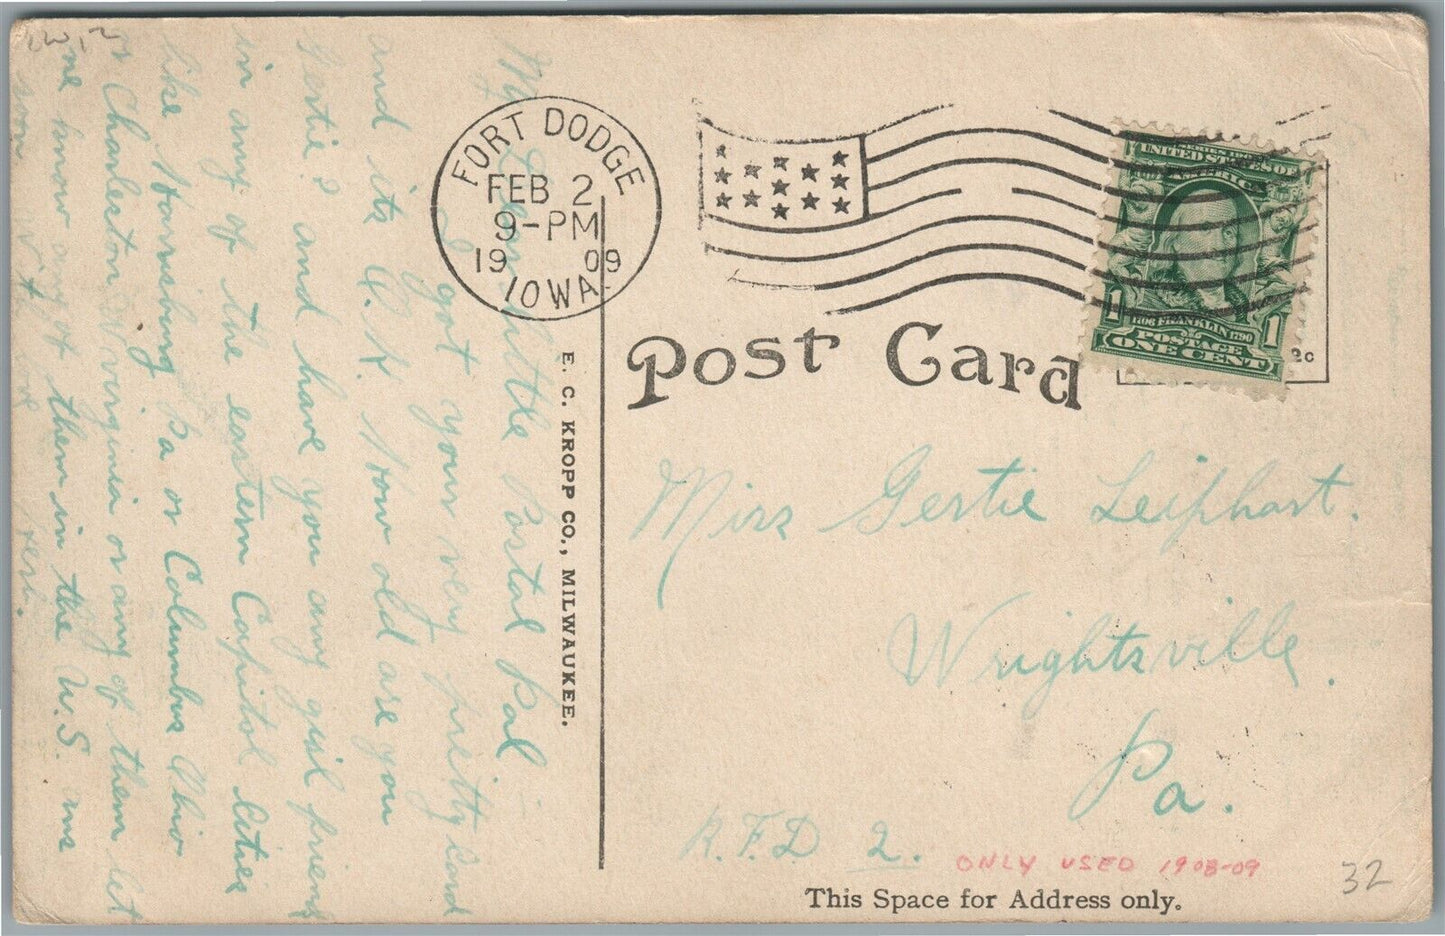 My Dear little Postal Pal
I got your very pretty card
and its O.K. How old are you
Gertie? and have you any girl friend
in any of the eastern Capitol Cities
like Harrisburg Pa or Columbus Ohio
or Charleston W virginia or any of them let
me know any of them in the U.S. ans
soon With love
FORT DODGE
FEB 2
9-PM
1909
IOWA.
E. C. KROPP CO., MILWAUKEE.
Post Card
SERIES 1902
UNITED STATES OF
AMERICA
1706 FRANKLIN 1790
1 POSTAGE 1
ONE CENT
2c
Miss Gertie Leiphart.
Wrightsville.
Pa.
R.F.D 2.
ONLY USED 1908-09
32
This Space for Address only.